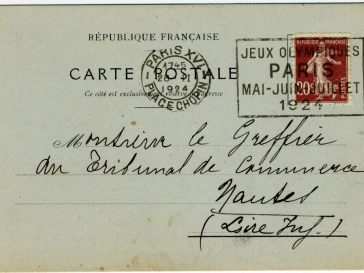 RÉPUBLIQUE FRANÇAISE
CARTE POSTALE
Ce côté est exclusivement réservé à l'adresse
PARIS XVI
1745
1924
PLACE CHOPIN
JEUX OLYMPIQUES
PARIS
MAI-JUIN-JUILLET
1924
Monsieur le Greffier
du Tribunal de Commerce
Nantes
(Loire Inf.)